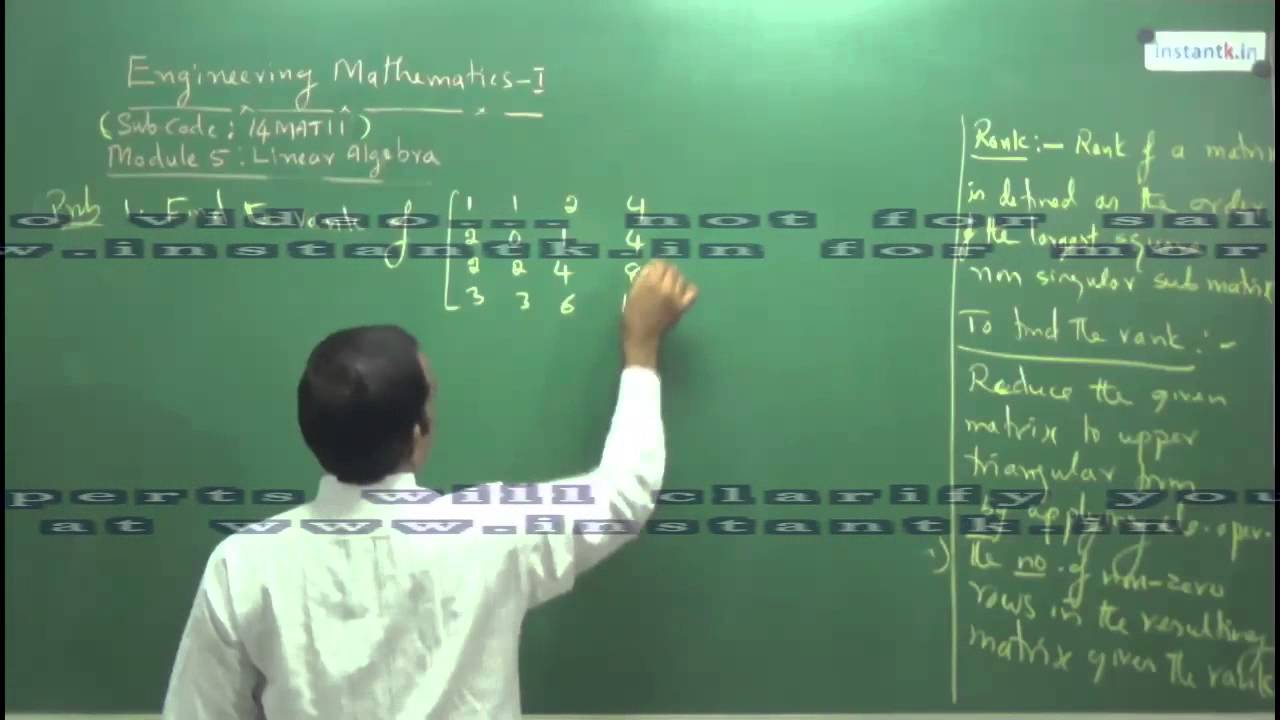 instantk.in
Engineering Mathematics-I
(Sub code: 14MAT11)
Module 5: Linear Algebra
Prob 1. Find the rank of
1 1 2 4
2 0 1 4
2 2 4 8
3 3 6
Rank:- Rank of a matrix
is defined as the order
of the largest square
non singular sub matrix
To find the rank:-
Reduce the given
matrix to upper
triangular form
by applying
the no. of non-zero
rows in the resulting
matrix gives the rank
not for sal
w.instantk.in for mor
perts will clarify you
at www.instantk.in